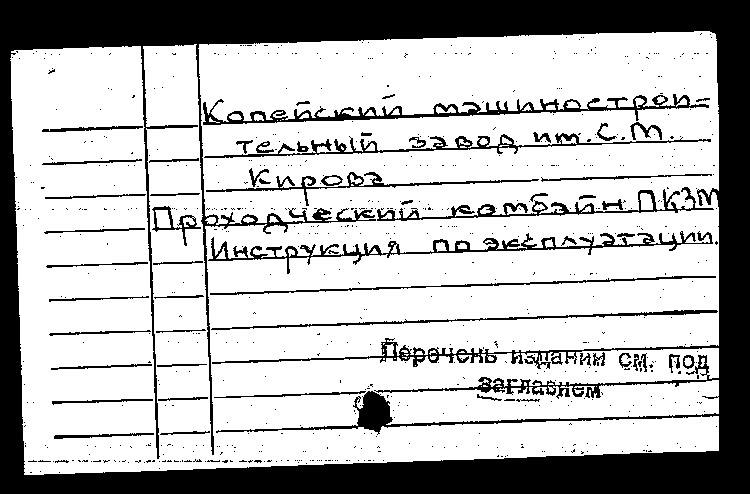 Копейский машинострои=
тельный завод им. С.М.
Кирова
Проходческий комбайн ПК3М
Инструкция по эксплуатации.
Перечень изданий см. под
заглавием